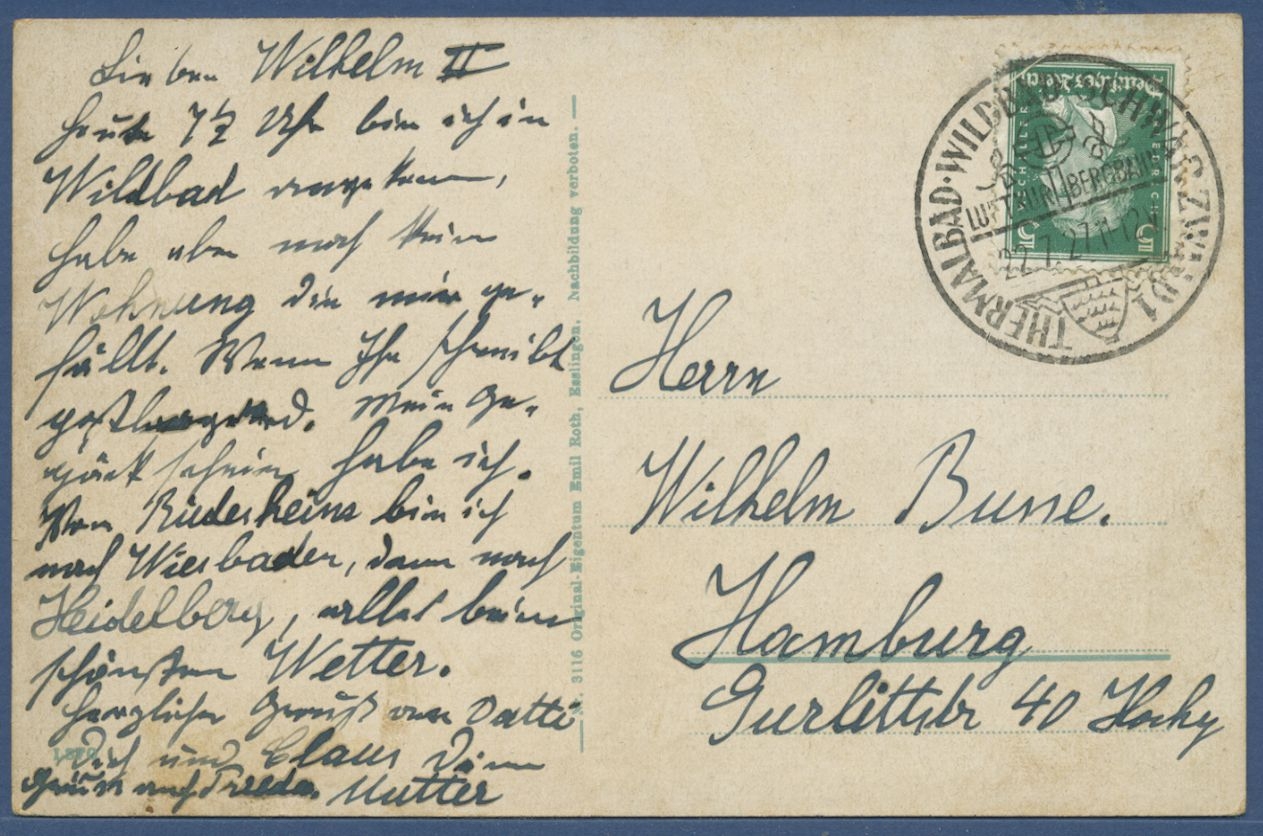 Lieber Wilhelm II
heute 7 1/2 Uhr bin ich in
Wildbad angekomm,
habe aber noch keine
Wohnung die mir ge-
fällt. Wenn Ihr schreibt
postlagernd. Mein Ge-
päck schein habe ich.
Von Rüdesheim bin ich
nach Wiesbaden, dann nach
Heidelberg, alles beim
schönsten Wetter.
Herzlichen Gruß an
Dich und Claus Deine
Mutter
Nachbildung verboten.
3116 Original-Eigentum Emil Roth, Esslingen.
Deutsches Reich
5
THERMALBAD·WILDBAD
LUFTKURORT BERGBAHN
7.27.11-12
Herrn
Wilhelm Busse.
Hamburg
Gurlittstr 40 Hochp